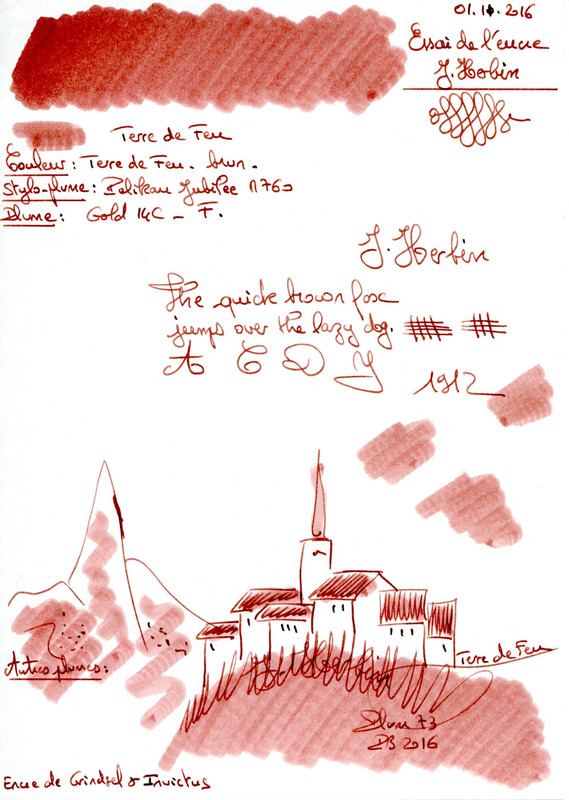 01.10.2016
Essai de l'encre
J. Herbin
Terre de Feu
Couleur : Terre de Feu. brun.
Stylo-plume : Pelikan Jubilee 1760
Plume : Gold 14C - F.
J. Herbin
The quick brown fox
jumps over the lazy dog.
A C D J
1912
Terre de Feu
Autres plumes :
Plum 73
2016
Encre de Grindsel & Invictus